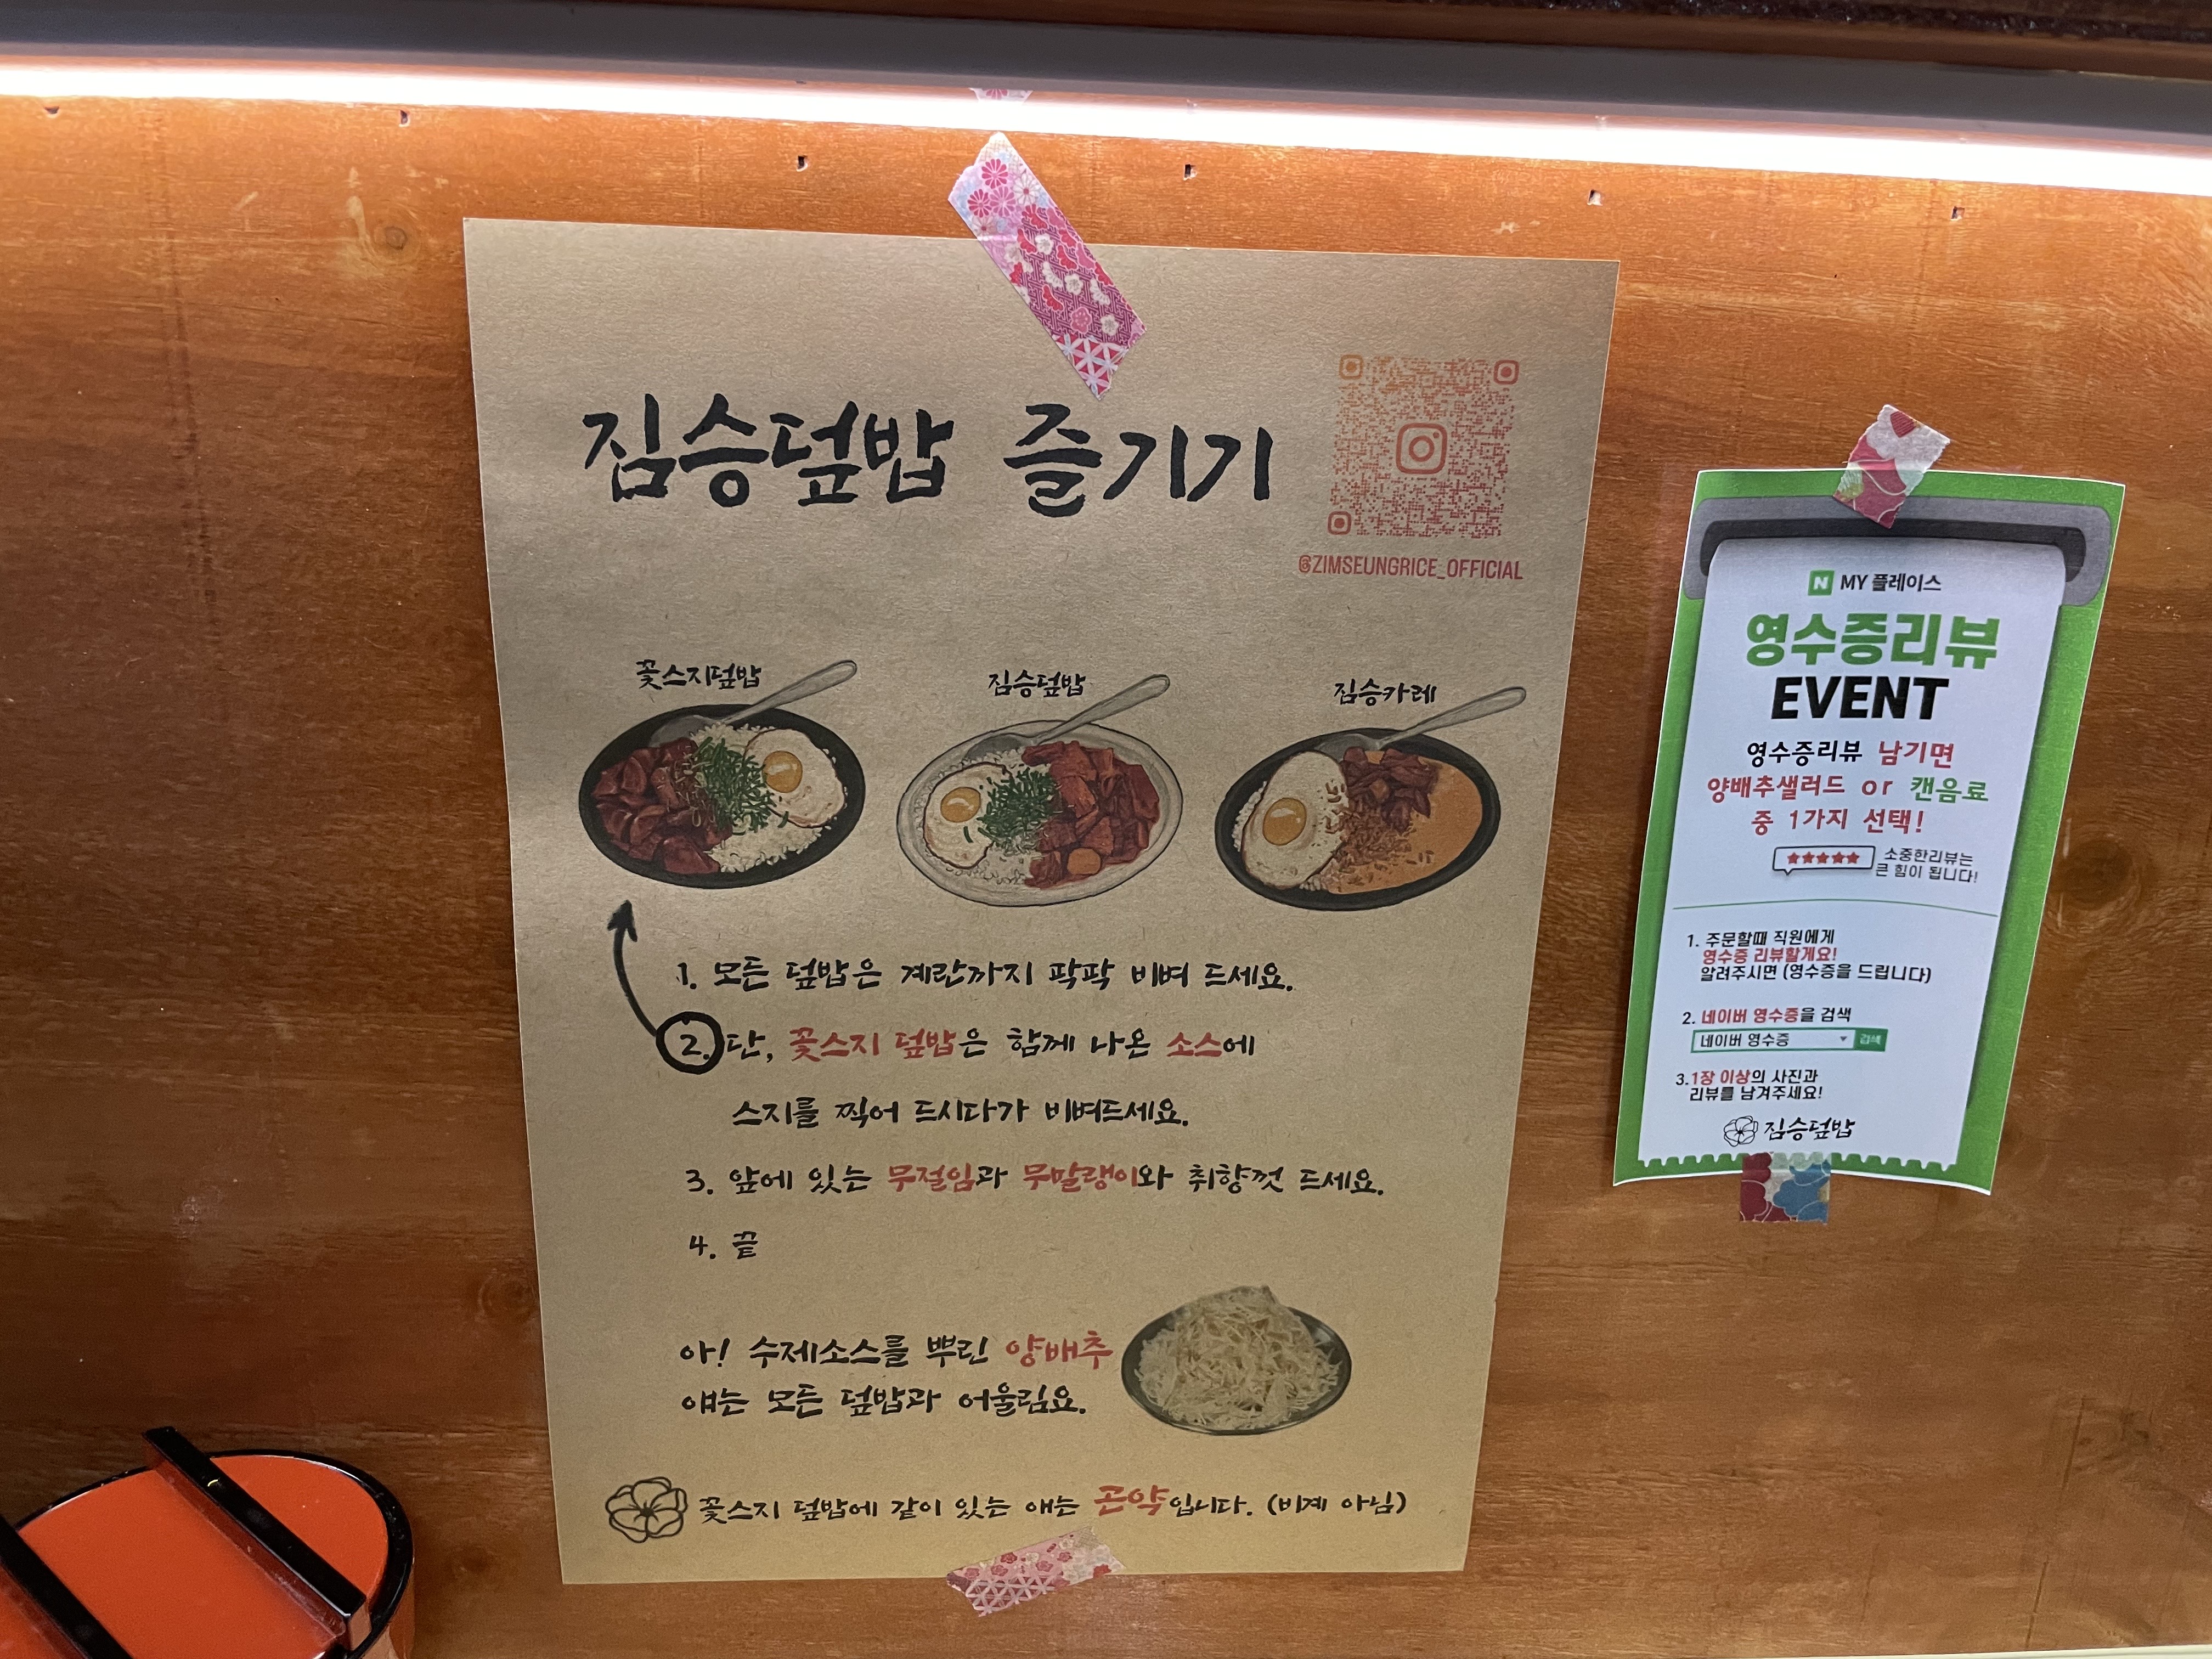 짐승덮밥 즐기기
@ZIMSEUNGRICE_OFFICIAL
꽃스지덮밥
짐승덮밥
짐승카레
1. 모든 덮밥은 계란까지 팍팍 비벼 드세요.
2. 단, 꽃스지 덮밥은 함께 나온 소스에
스지를 찍어 드시다가 비벼드세요.
3. 앞에 있는 무절임과 무말랭이와 취향껏 드세요.
4. 끝
아! 수제소스를 뿌린 양배추
얘는 모든 덮밥과 어울림요.
꽃스지 덮밥에 같이 있는 얘는 곤약입니다. (비계 아님)
N MY 플레이스
영수증리뷰
EVENT
영수증리뷰 남기면
양배추샐러드 or 캔음료
중 1가지 선택!
소중한리뷰는
큰 힘이 됩니다!
1. 주문할때 직원에게
영수증 리뷰할게요!
알려주시면 (영수증을 드립니다)
2. 네이버 영수증을 검색
네이버 영수증 검색
3.1장 이상의 사진과
리뷰를 남겨주세요!
짐승덮밥